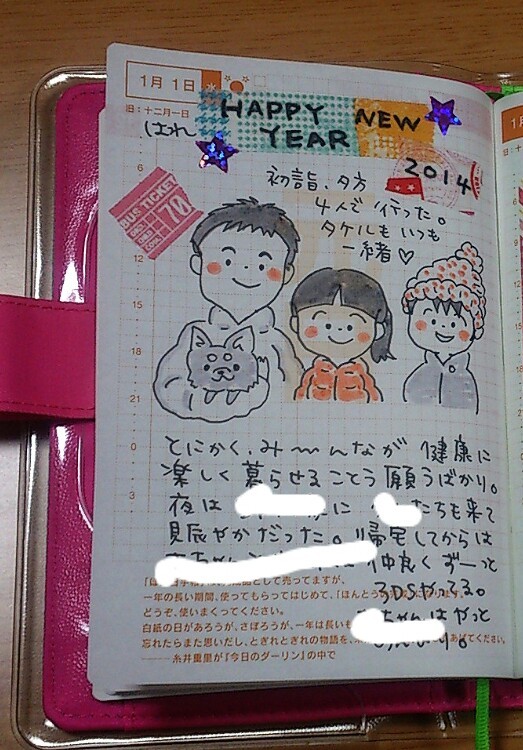 1月 1日
旧：十二月一日
はれ
HAPPY NEW
YEAR
2014
BUS TICKET
70
初詣、夕方
4人で行った。
タケルもいつも
一緒♡
6
9
12
15
18
21
0
3
とにかく、み〜んなが 健康に
楽しく暮らせることう願うばかり。
夜は に たちも来て
見辰やかだった。帰宅してからは
仲良くずーっと
3DSやってる。
ちゃんはやっと
として売ってますが、
一年の長い期間、使ってもらってはじめて、「ほんとうの
どうぞ、使いまくってください。
白紙の日があろうが、さぼろうが、一年は長いも
忘れたらまた思いだし、とぎれとぎれの物語を、 あげてください。
―― 糸井重里が『今日のダーリン』の中で
1月